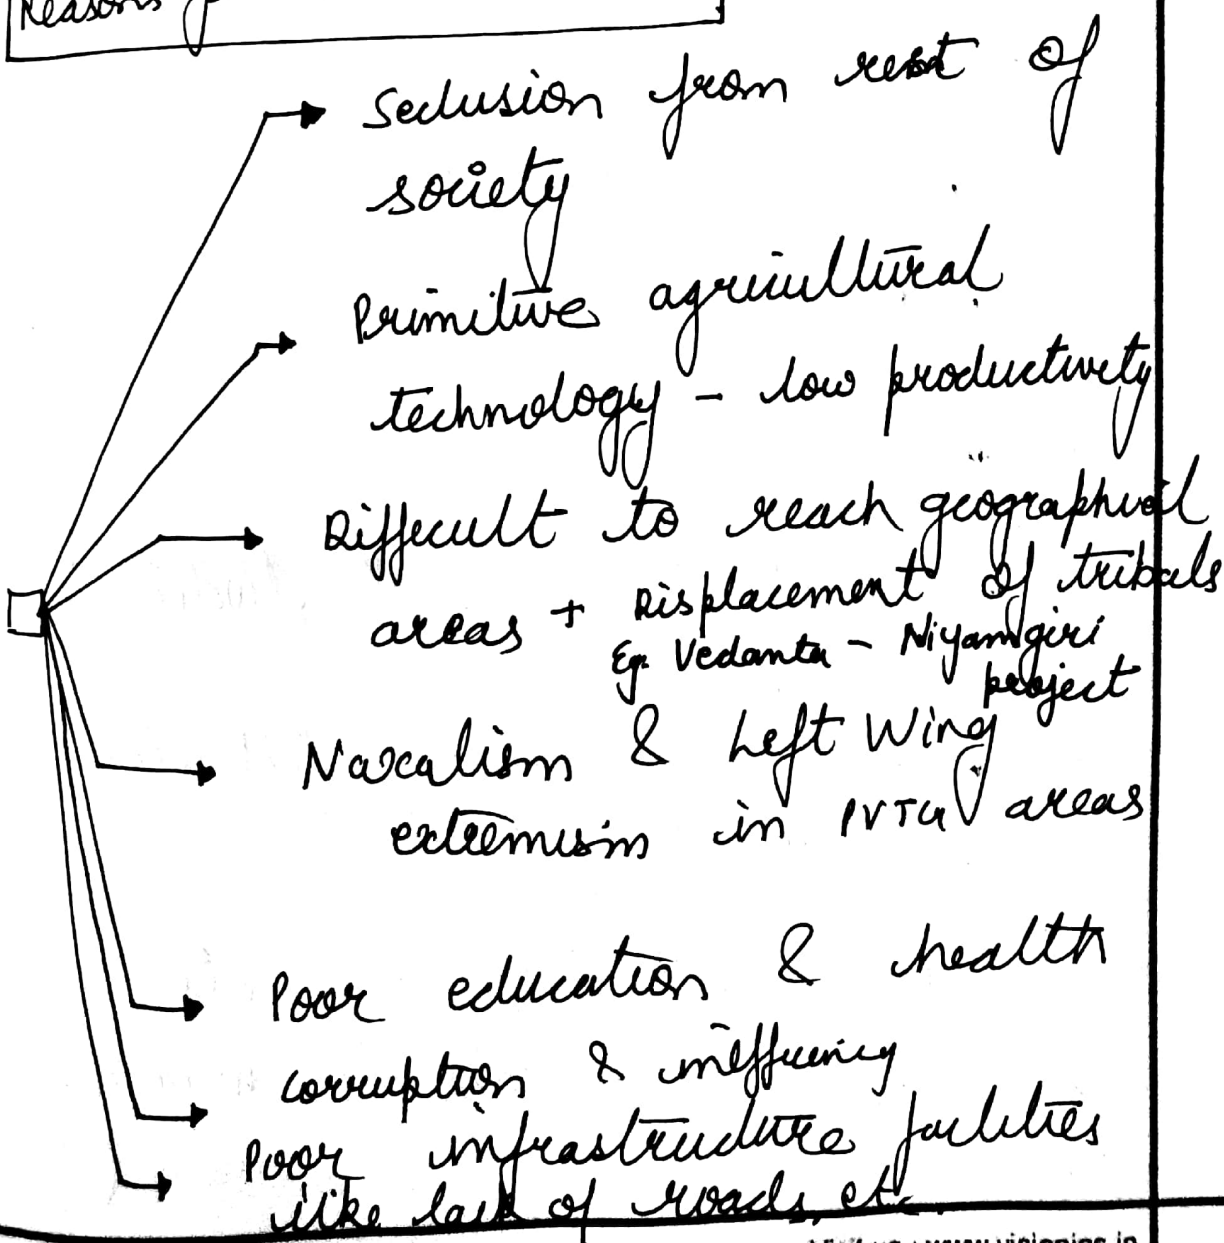 Reasons
Seclusion from rest of
society
Primitive agricultural
technology - low productivity
Difficult to reach geographical
areas + Displacement of tribals
Eg. Vedanta - Niyamgiri
project
Naxalism & Left Wing
extremism in PVTG areas
Poor education & health
corruption & inefficiency
Poor infrastructure facilities
like lack of roads, etc.